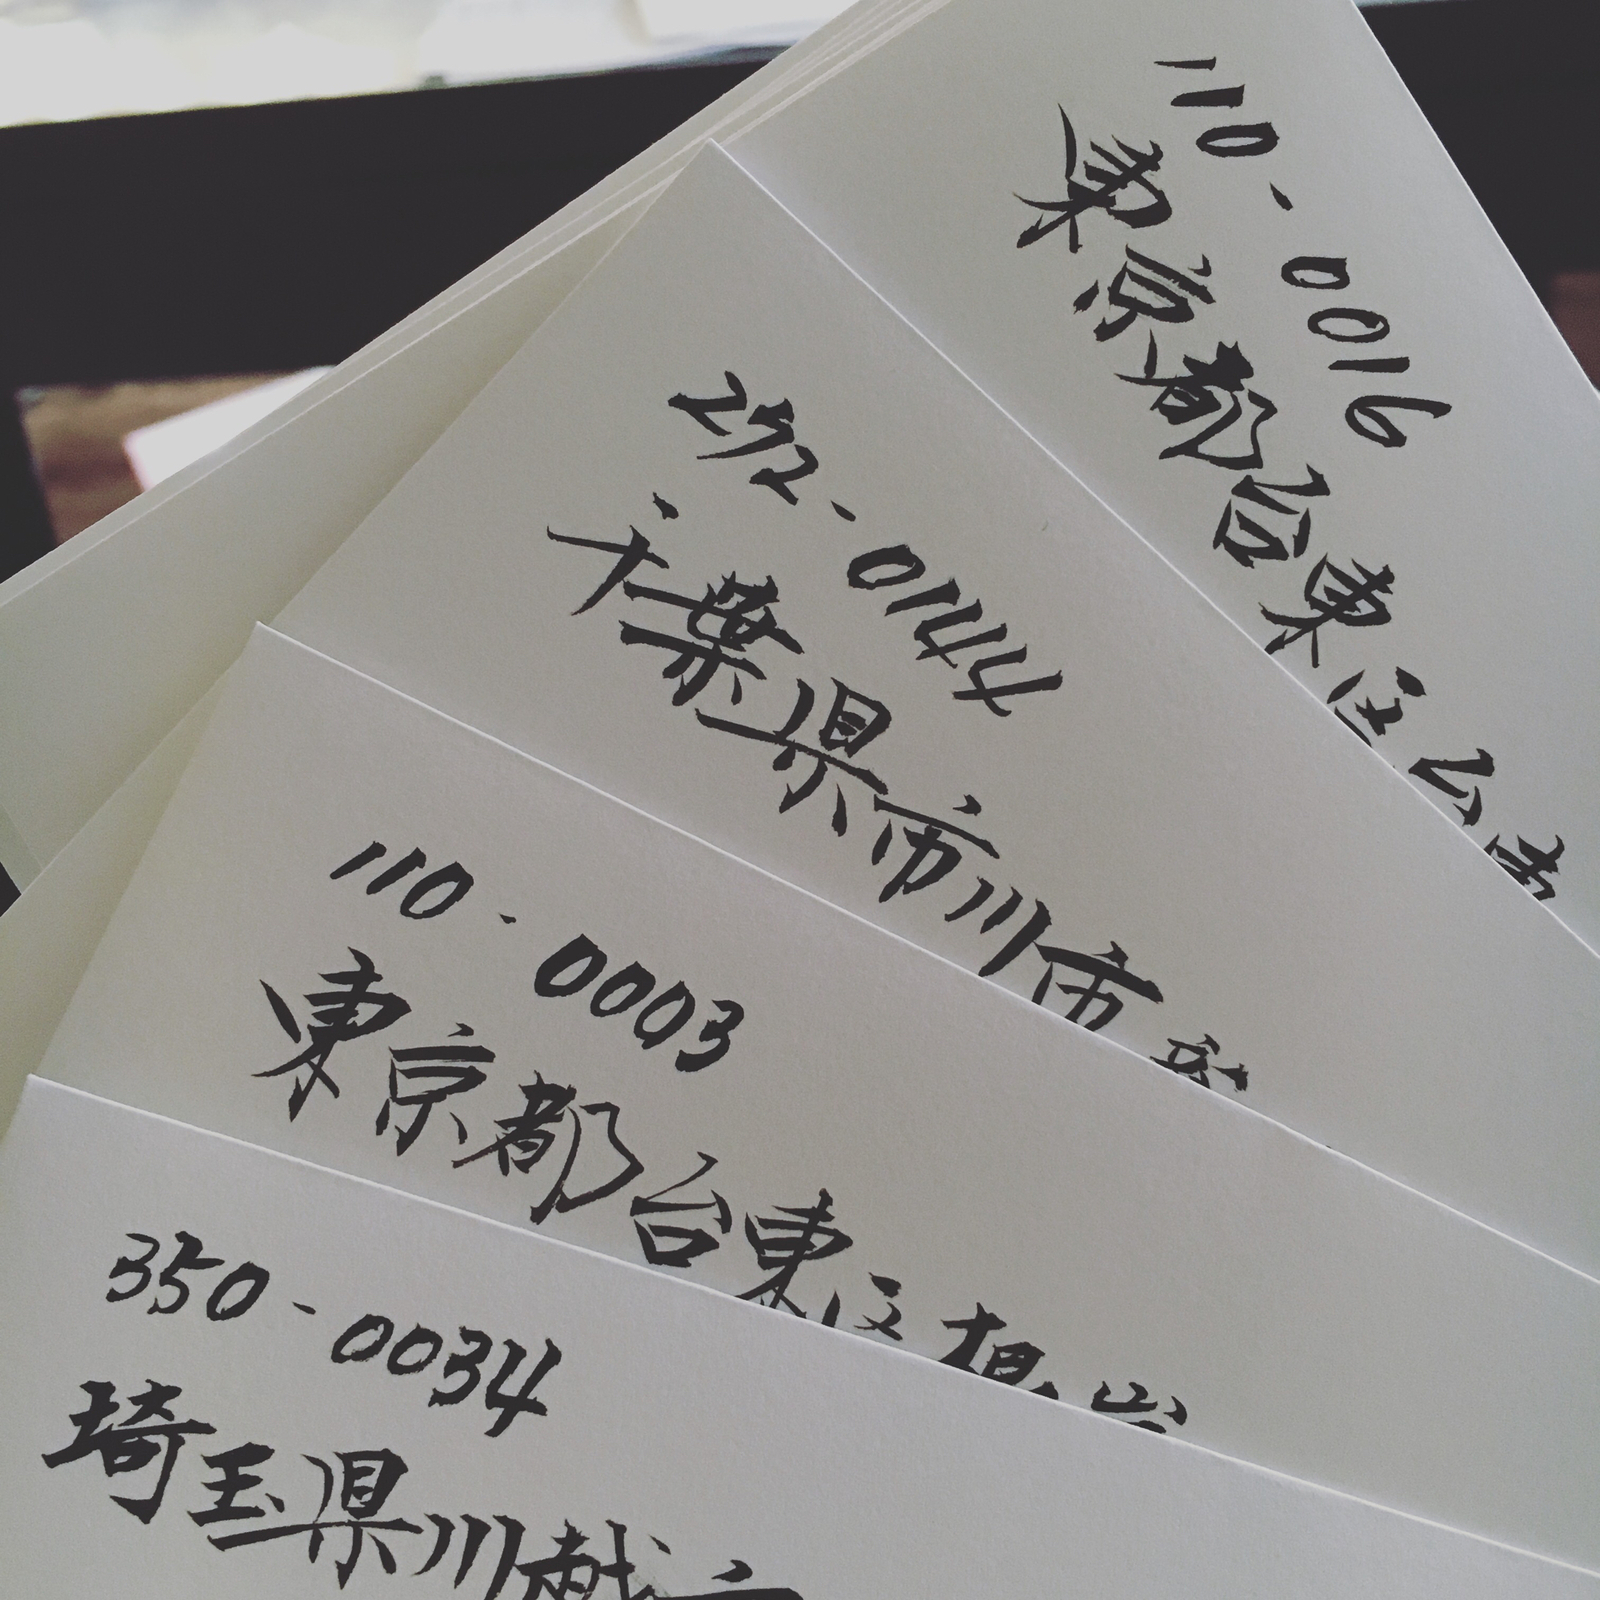 110-0016
東京都台東区台東
272-0144
千葉県市川市新
110-0003
東京都台東区根岸
350-0034
埼玉県川越市